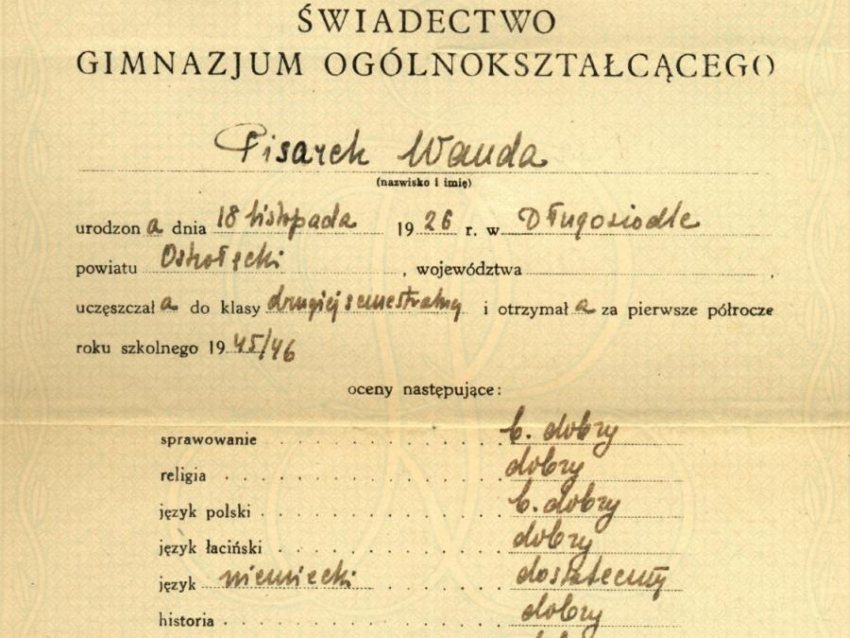 ŚWIADECTWO
GIMNAZJUM OGÓLNOKSZTAŁCĄCEGO
Pisarek Wanda
(nazwisko i imię)
urodzon a dnia 18 listopada 1926 r. w Długosiodle
powiatu Ostrołęcki, województwa
uczęszczał a do klasy drugiej semestralnej i otrzymał a za pierwsze półrocze
roku szkolnego 1945/46
oceny następujące:
sprawowanie b. dobry
religia dobry
język polski b. dobry
język łaciński dobry
język niemiecki dostateczny
historia dobry